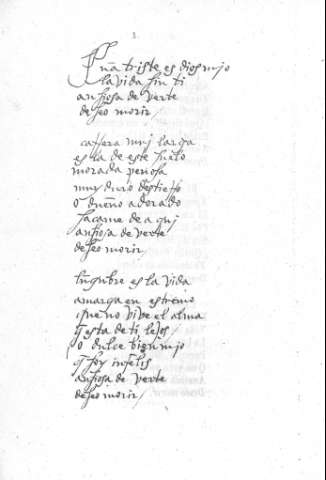 Quan triste es dios mio
la vida sin ti
ansiosa de verte
deseo morir
carrera muy larga
es la de este suelo
morada penosa
muy duro destierro
o dueño adorado
sacame de aqui
ansiosa de verte
deseo morir
lugubre es la vida
amarga en estremo
que no vive el alma
q esta de ti lejos
o dulce bien mio
q soy infelis
ansiosa de verte
deseo morir